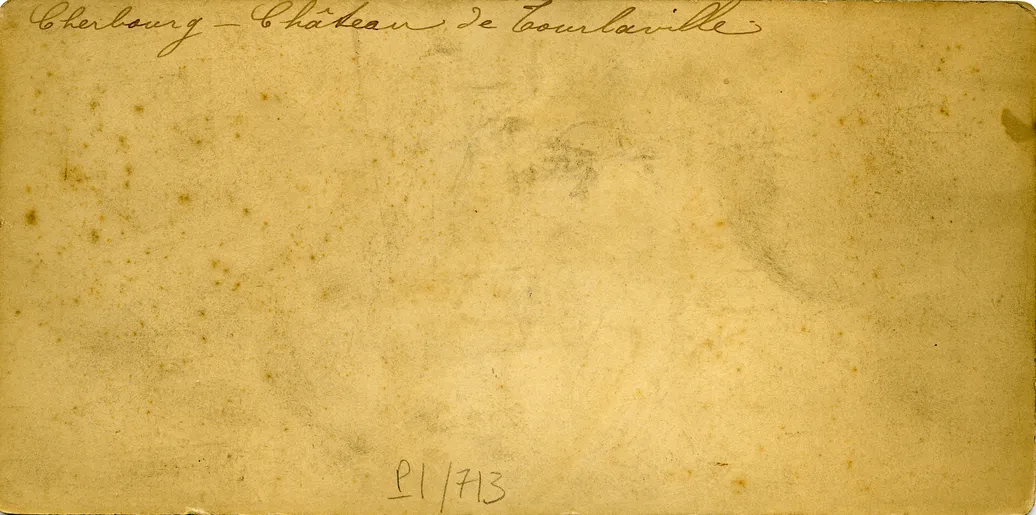 Cherbourg – Château de Tourlaville
P1/713